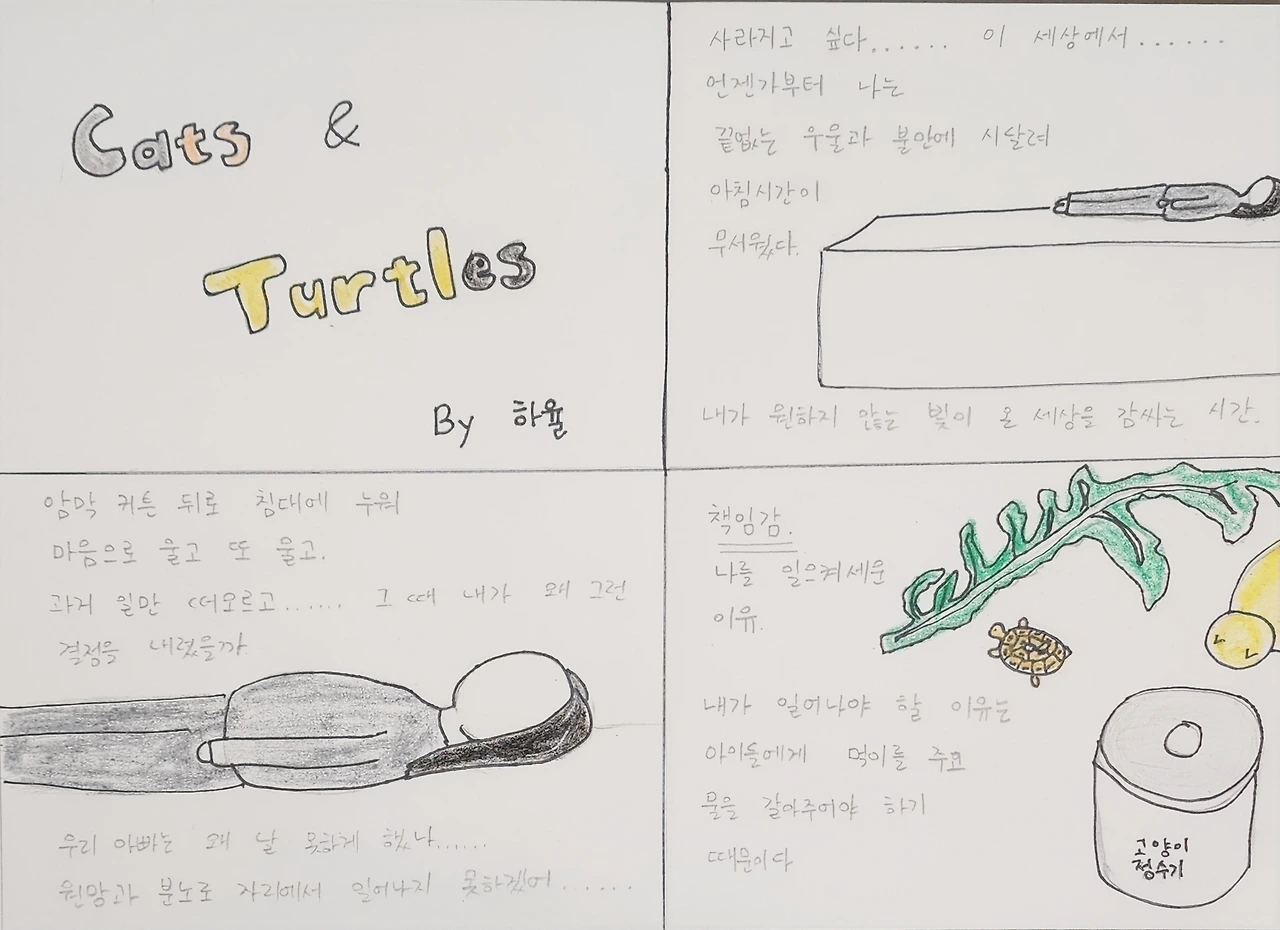 Cats &
Turtles
By 하율
사라지고 싶다...... 이 세상에서......
언젠가부터 나는
끝없는 우울과 불안에 시달려
아침시간이
무서웠다.
내가 원하지 않는 빛이 온 세상을 감싸는 시간.
암막 커튼 뒤로 침대에 누워
마음으로 울고 또 울고.
과거 일만 떠오르고...... 그 때 내가 왜 그런
결정을 내렸을까
우리 아빠는 왜 날 못하게 했나......
원망과 분노로 자리에서 일어나지 못하겠어......
책임감.
나를 일으켜세운
이유.
내가 일어나야 할 이유는
아이들에게 먹이를 주고
물을 갈아주어야 하기
때문이다
고양이
정수기